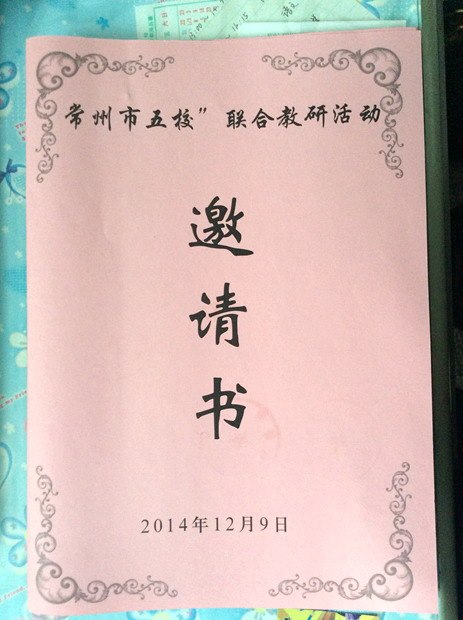 常州市五校”联合教研活动
邀
请
书
2014年12月9日